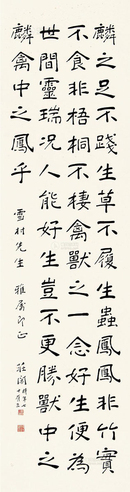 麟之足不踐生草不履生蟲鳳非竹實
不食非梧桐不棲禽獸之一念好生便為
世間靈瑞況人能好生豈不更勝獸中之
麟禽中之鳳乎
雪村先生 雅屬即正
莊閑